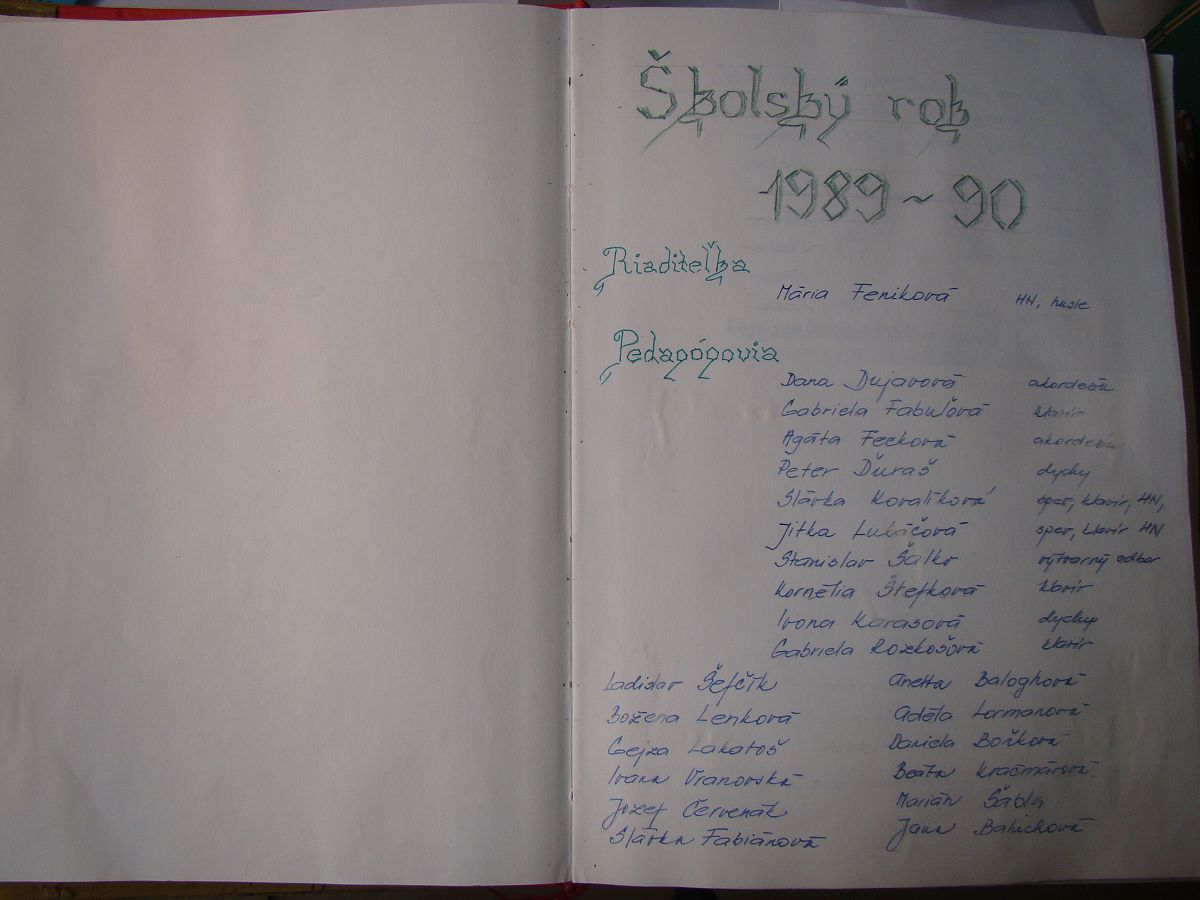 Školský rok
1989~90
Riaditeľka
Mária Feniková HN, husle
Pedagógovia
Dana Dujavová akordeón
Gabriela Fabuľová klavír
Agáta Fecková akordeón
Peter Ďuraš dychy
Slávka Kovalíková spev, klavír, HN,
Jitka Lukáčová spev, klavír HN
Stanislav Šalko výtvarný odbor
Kornélia Štefková klavír
Ivona Karasová dychy
Gabriela Rozkošová klavír
Ladislav Šefčík Anetta Baloghová
Božena Lenková Adéla Lormanová
Gejza Lakatoš Daniela Boňková
Ivana Vranovská Beáta Kračmárová
Jozef Červenák Marián Šábla
Slávka Fabiánová Jana Balúchová